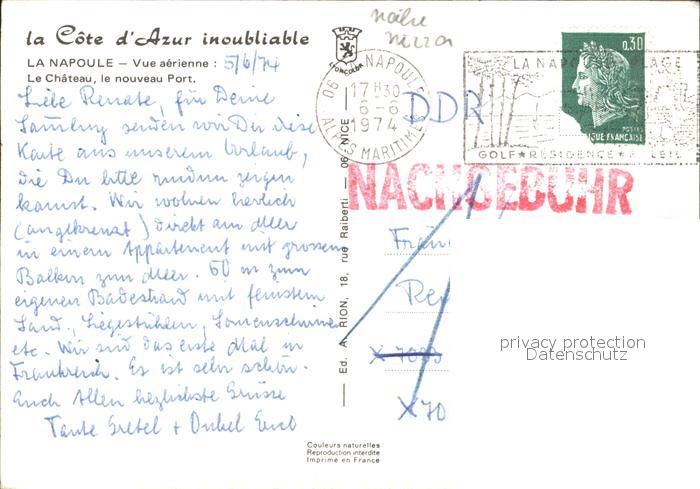 la Côte d'Azur inoubliable
LA NAPOULE – Vue aérienne : 5/6/74
Le Château, le nouveau Port.
Liebe Renate, für Deine
Sammlung senden wir Dir diese
Karte aus unserem Urlaub,
die Du bitte rundum zeigen
kannst. Wir wohnen herrlich
(angekreuzt) direkt am Meer
in einem Appartement mit grossem
Balkon zum Meer. 50 m zum
eigenen Badestrand mit feinstem
Sand, Liegestühlen, Sonnenschirmen
etc. Wir sind das erste Mal in
Frankreich. Es ist sehr schön.
Euch Allen herzlichste Grüsse
Tante Gretel + Onkel
Ed. A. RION, 18, rue Raiberti — 06 NICE
LYONCOLOR
06 NAPOULE
17H30
6-6
1974
ALPES MARITIMES
DDR
0,30
POSTES
QUE FRANÇAISE
LA NAPOULE PLAGE
GOLF★RESIDENCE★
NACHGEBÜHR
Fran
Re
X 70
X 70
privacy protection
Datenschutz
Couleurs naturelles
Reproduction interdite
Imprimé en France